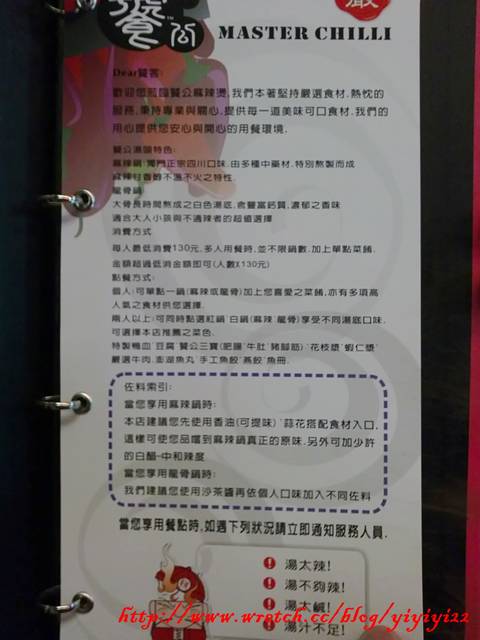 饕公™
MASTER CHILLI
Dear饕客:
歡迎您蒞臨饕公麻辣燙,我們本著堅持嚴選食材.熱忱的
服務,秉持專業與關心,提供每一道美味可口食材.我們的
用心提供您安心與開心的用餐環境.
饕公湯頭特色:
麻辣鍋:獨門正宗四川口味.由多種中藥材.特別熬製而成
麻辣甘香醇不溫不火之特性.
龍骨鍋:
大骨長時間熬成之白色湯底.含豐富鈣質,濃郁之香味
適合大人小孩與不適辣者的超值選擇
消費方式
每人最低消費130元,多人用餐時,並不限鍋數.加上單點菜餚.
金額超過低消金額即可(人數X130元)
點餐方式:
個人:可單點一鍋(麻辣或龍骨)加上您喜愛之菜餚,亦有多項高
人氣之食材供您選擇.
兩人以上:可同時點選紅鍋˙白鍋(麻辣˙龍骨)享受不同湯底口味.
可選擇本店推薦之菜色.
特製鴨血˙豆腐˙饕公三寶(肥腸˙牛肚˙豬腳筋)˙花枝漿˙蝦仁漿˙
嚴選牛肉.澎湖魚丸˙手工魚餃˙燕餃˙魚冊.
佐料索引:
當您享用麻辣鍋時:
本店建議您先使用香油(可提味)˙蒜花搭配食材入口,
這樣可使您品嚐到麻辣鍋真正的原味.另外可加少許
的白醋-中和辣度
當您享用龍骨鍋時:
我們建議您使用沙茶醬再依個人口味加入不同佐料
當您享用餐點時,如遇下列狀況請立即通知服務人員.
湯太辣!
湯不夠辣!
湯太鹹!
湯汁不足!
http://www.wretch.cc/blog/yiyiyi22